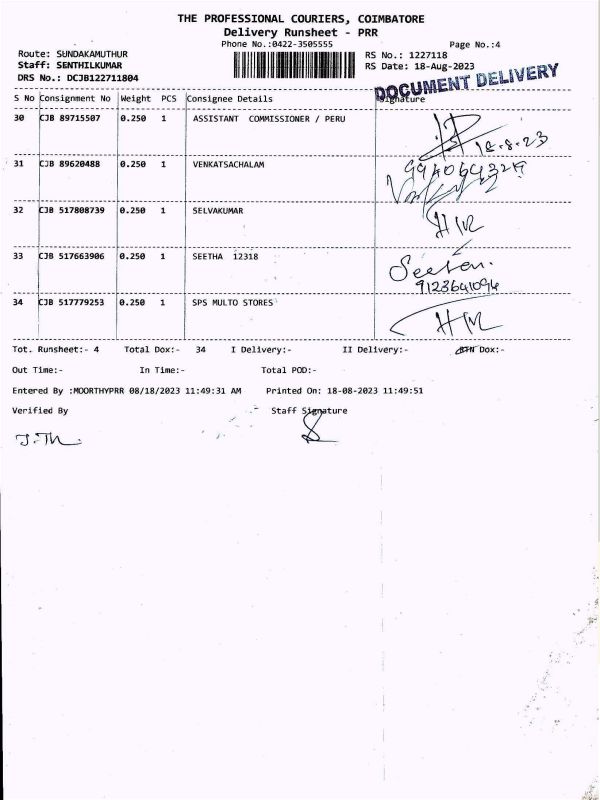 THE PROFESSIONAL COURIERS, COIMBATORE
Delivery Runsheet - PRR
Phone No.:0422-3505555 Page No.:4
Route: SUNDAKAMUTHUR RS No.: 1227118
Staff: SENTHILKUMAR RS Date: 18-Aug-2023
DRS No.: DCJB122711804
DOCUMENT DELIVERY
S No Consignment No Weight PCS Consignee Details Signature
30 CJB 89715507 0.250 1 ASSISTANT COMMISSIONER / PERU
18-8-23
31 CJB 89620488 0.250 1 VENKATSACHALAM
32 CJB 517808739 0.250 1 SELVAKUMAR
33 CJB 517663906 0.250 1 SEETHA 12318
9123641094
34 CJB 517779253 0.250 1 SPS MULTO STORES
Tot. Runsheet:- 4 Total Dox:- 34 I Delivery:- II Delivery:- Dox:-
Out Time:- In Time:- Total POD:-
Entered By :MOORTHYPRR 08/18/2023 11:49:31 AM Printed On: 18-08-2023 11:49:51
Verified By Staff Signature